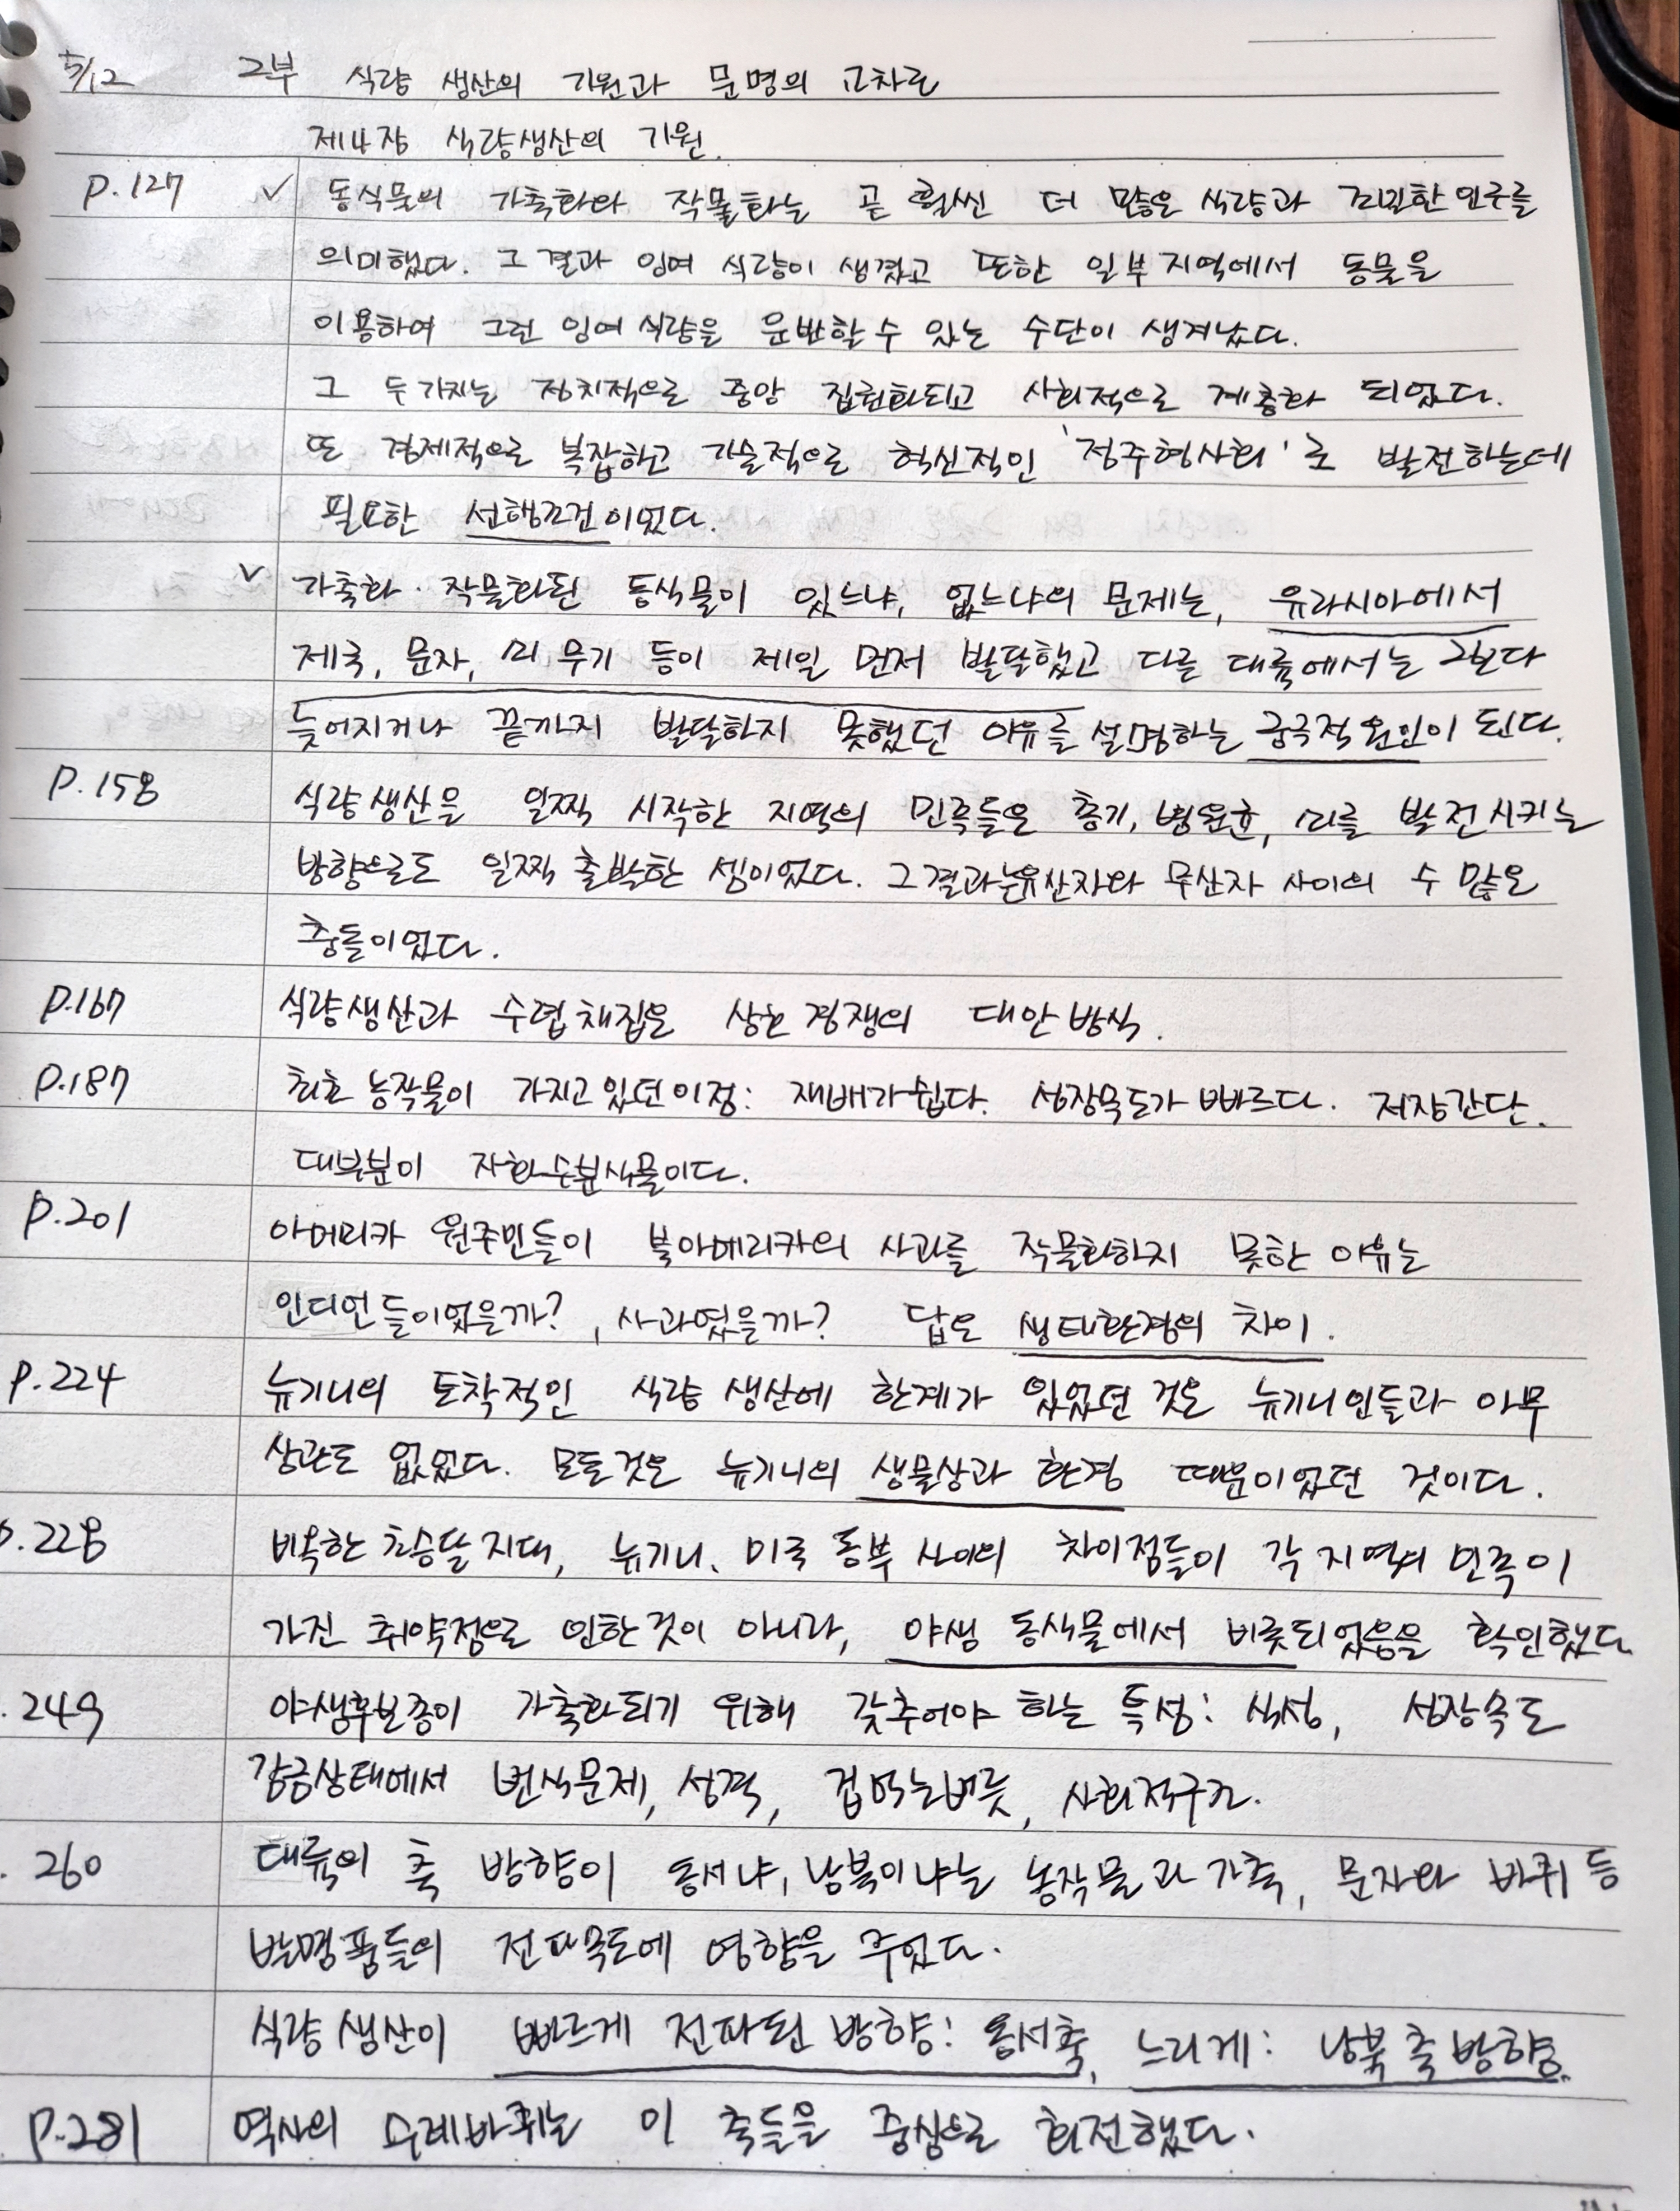 5/12 2부 식량 생산의 기원과 문명의 교차로
제4장 식량생산의 기원.
P.127 ✓ 동식물의 가축화와 작물화는 곧 훨씬 더 많은 식량과 조밀한 인구를
의미했다. 그 결과 잉여 식량이 생겼고 또한 일부 지역에서 동물을
이용하여 그런 잉여 식량을 운반할 수 있는 수단이 생겨났다.
그 두가지는 정치적으로 중앙 집권화되고 사회적으로 계층화 되었다.
또 경제적으로 복잡하고 기술적으로 혁신적인 '정주형사회'로 발전하는데
필요한 선행조건이었다.
✓ 가축화·작물화된 동식물이 있느냐, 없느냐의 문제는, 유라시아에서
제국, 문자, 쇠 무기 등이 제일 먼저 발달했고 다른 대륙에서는 그보다
늦어지거나 끝까지 발달하지 못했던 이유를 설명하는 궁극적 원인이 된다.
P.158 식량생산을 일찍 시작한 지역의 민족들은 총기, 병원균, 쇠를 발전시키는
방향으로도 일찍 출발한 셈이었다. 그결과는유산자와 무산자 사이의 수 많은
충돌이었다.
P.167 식량생산과 수렵채집은 상호 경쟁의 대안 방식.
P.187 최초 농작물이 가지고 있던이점: 재배가 쉽다. 성장속도가 빠르다. 저장간단.
대부분이 자화수분식물이다.
P.201 아메리카 원주민들이 북아메리카의 사과를 작물화하지 못한 이유는
인디언들이었을까?, 사과였을까? 답은 생태환경의 차이.
P.224 뉴기니의 토착적인 식량 생산에 한계가 있었던 것은 뉴기니인들과 아무
상관도 없었다. 모든것은 뉴기니의 생물상과 환경 때문이었던 것이다.
P.228 비옥한 초승달 지대, 뉴기니, 미국 동부 사이의 차이점들이 각 지역의 민족이
가진 취약점으로 인한것이 아니라, 야생 동식물에서 비롯되었음을 확인했다
.249 야생후보종이 가축화되기 위해 갖추어야 하는 특성: 식성, 성장속도
감금상태에서 번식문제, 성격, 겁먹는버릇, 사회적구조.
.260 대륙의 축 방향이 동서냐, 남북이냐는 농작물과 가축, 문자와 바퀴 등
발명품들의 전파속도에 영향을 주었다.
식량생산이 빠르게 전파된 방향: 동서축, 느리게: 남북 축 방향.
P.281 역사의 수레바퀴는 이 축들을 중심으로 회전했다.